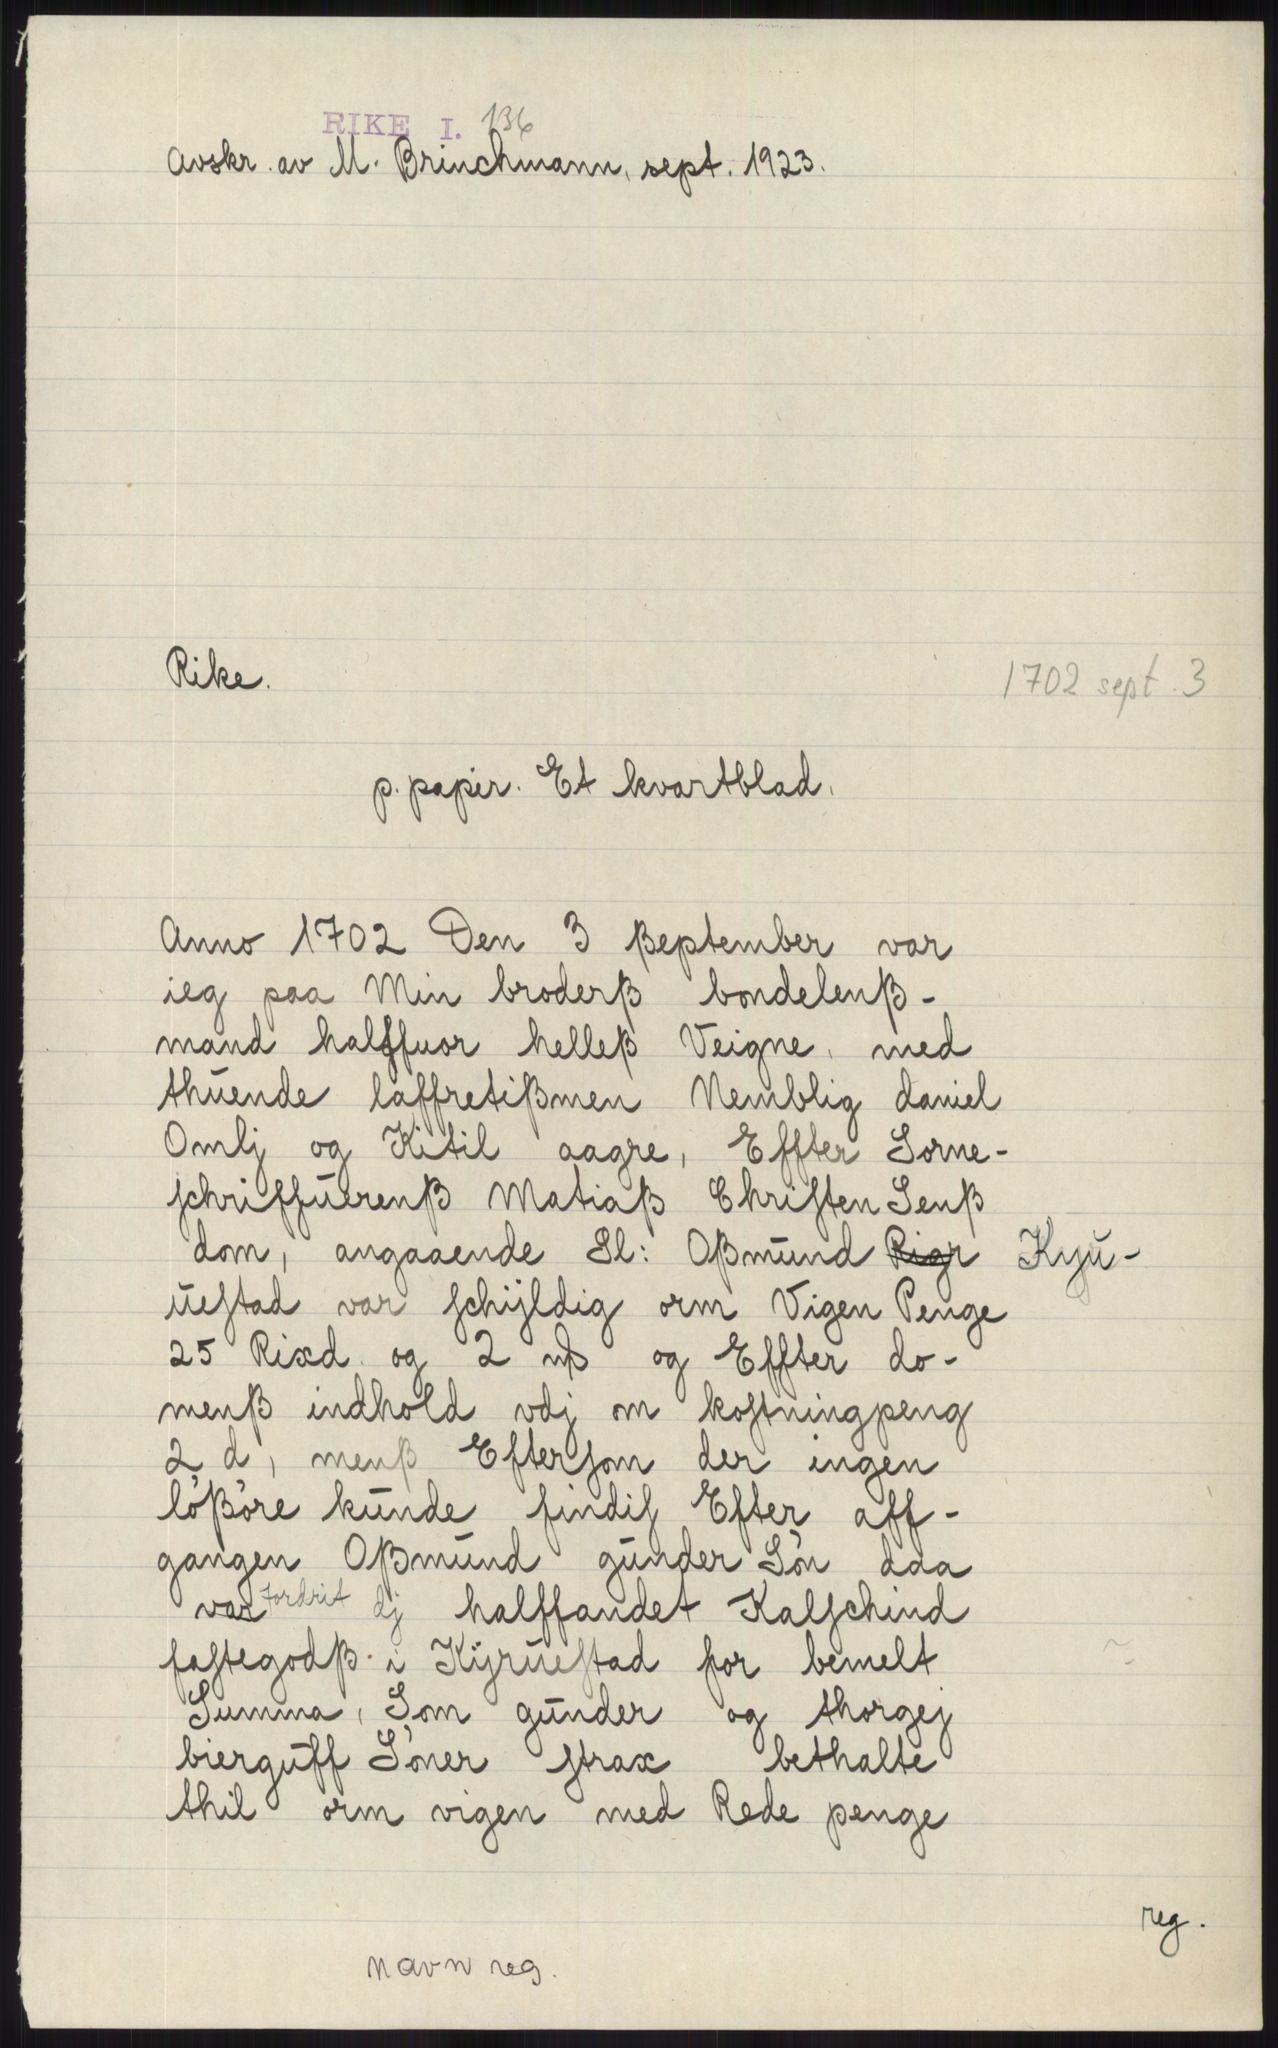 RIKE I. 136
Avskr. av M. Brinchmann, sept. 1923.
Rike.
1702 sept. 3
p. papir. Et kvartblad.
Anno 1702 Den 3 ßeptember var
ieg paa Min broderß bondelenß-
mand halffuor helleß Veigne, med
thuende laffretißmen Nemblig daniel
Omlj og Kitil aagre, Effter Sorne-
schriffuerenß Matiaß Christen Senß
dom, angaaende Sl: Oßmund Rigr Kyu-
uestad var schÿldig orm Vigen Penge
25 Rixd. og 2 ß og Effter do-
menß indhold vdj om kostningpeng
2 d, menß Eftersom der ingen
lößöre kunde findis Efter aff-
gangen Oßmund gunder Sön daa
var fordrit dj halffandet Kalschind
fastegodß i Kÿruestad for bemelt
Summa, Som gunder og thorgej
bierguff Söner strax bethalte
thil orm vigen med Rede penge
reg.
navn reg.